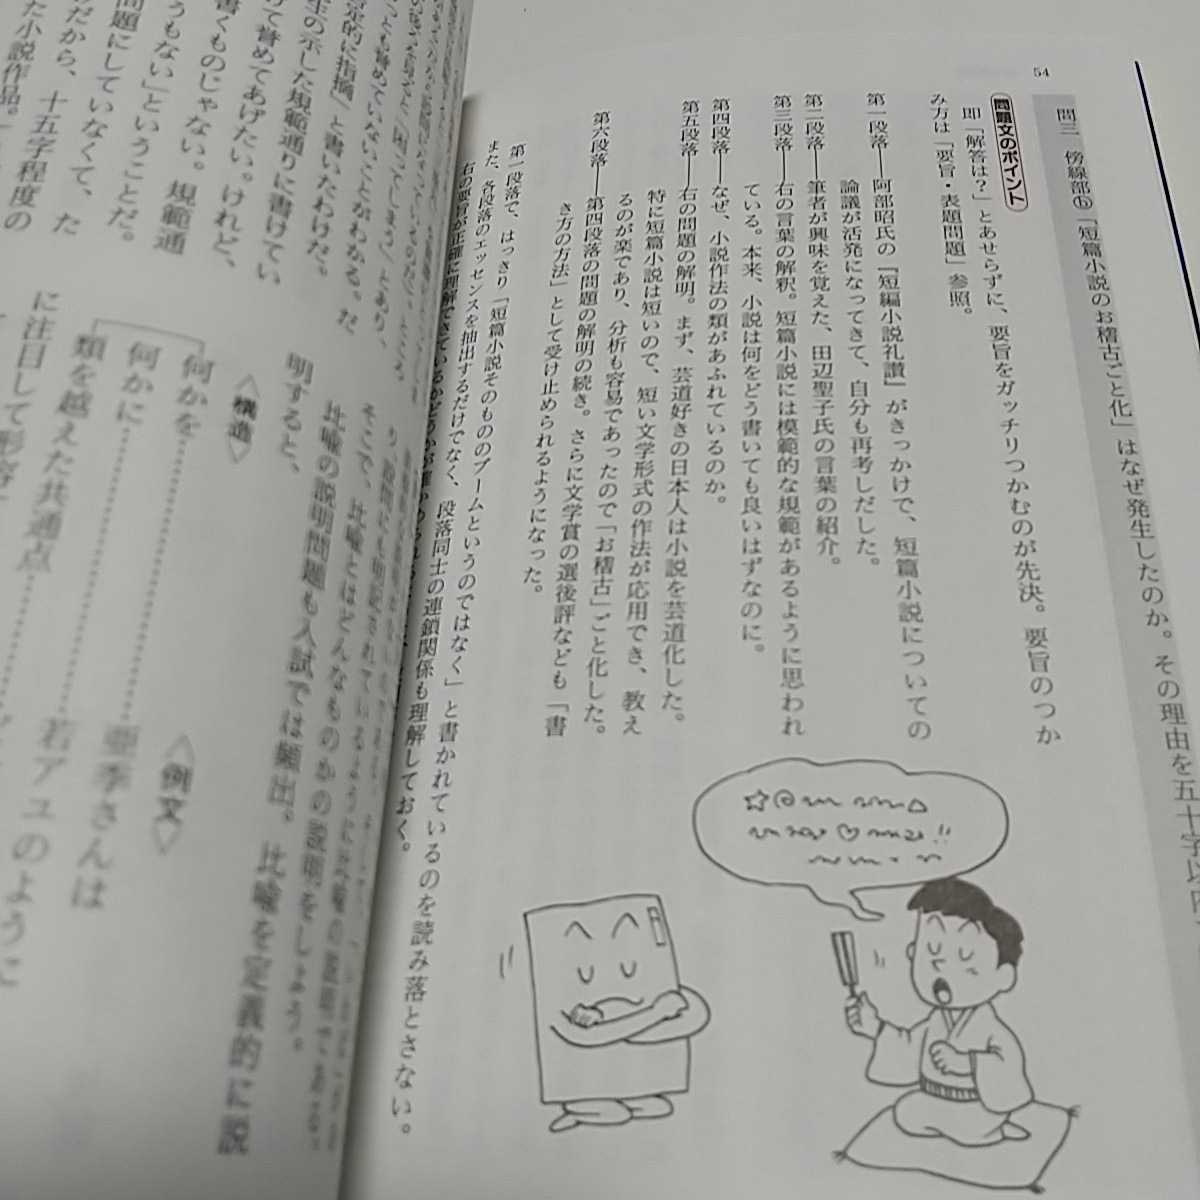 54
問三 傍線部ⓑ「短篇小説のお稽古ごと化」はなぜ発生したのか。その理由を五十字以内
問題文のポイント
即「解答は?」とあせらずに、要旨をガッチリつかむのが先決。要旨のつか
み方は「要旨・表題問題」参照。
第一段落――阿部昭氏の『短編小説礼讃』がきっかけで、短篇小説についての
論議が活発になってきて、自分も再考しだした。
第二段落――筆者が興味を覚えた、田辺聖子氏の言葉の紹介。
第三段落――右の言葉の解釈。短篇小説には模範的な規範があるように思われ
ている。本来、小説は何をどう書いても良いはずなのに。
第四段落――なぜ、小説作法の類があふれているのか。
第五段落――右の問題の解明。まず、芸道好きの日本人は小説を芸道化した。
特に短篇小説は短いので、短い文学形式の作法が応用でき、教え
るのが楽であり、分析も容易であったので「お稽古」ごと化した。
第六段落――第四段落の問題の解明の続き。さらに文学賞の選後評なども「書
き方の方法」として受け止められるようになった。
第一段落で、はっきり「短篇小説そのもののブームというのではなく」と書かれているのを読み落とさない。
また、各段落のエッセンスを抽出するだけでなく、段落同士の連鎖関係も理解しておく。
右の要旨が正確に理解できているかどうかが
そこで、比喩とはどんなものかの説明をしよう。
比喩の説明問題も入試では頻出。比喩を定義的に説
明すると、
〈構造〉
〈例文〉
何かを……亜季さんは
何かに……若アユのように
類を越えた共通点……
に注目して形容
っとも誉めていないことがわかる。だ
定的に指摘」と書いたわけだ。
生の示した規範通りに書けてい
けて誉めてあげたい。けれど、
書くものじゃない。規範通
うもない」ということだ。
問題にしていなくて、た
だから、十五字程度の
た小説作品。